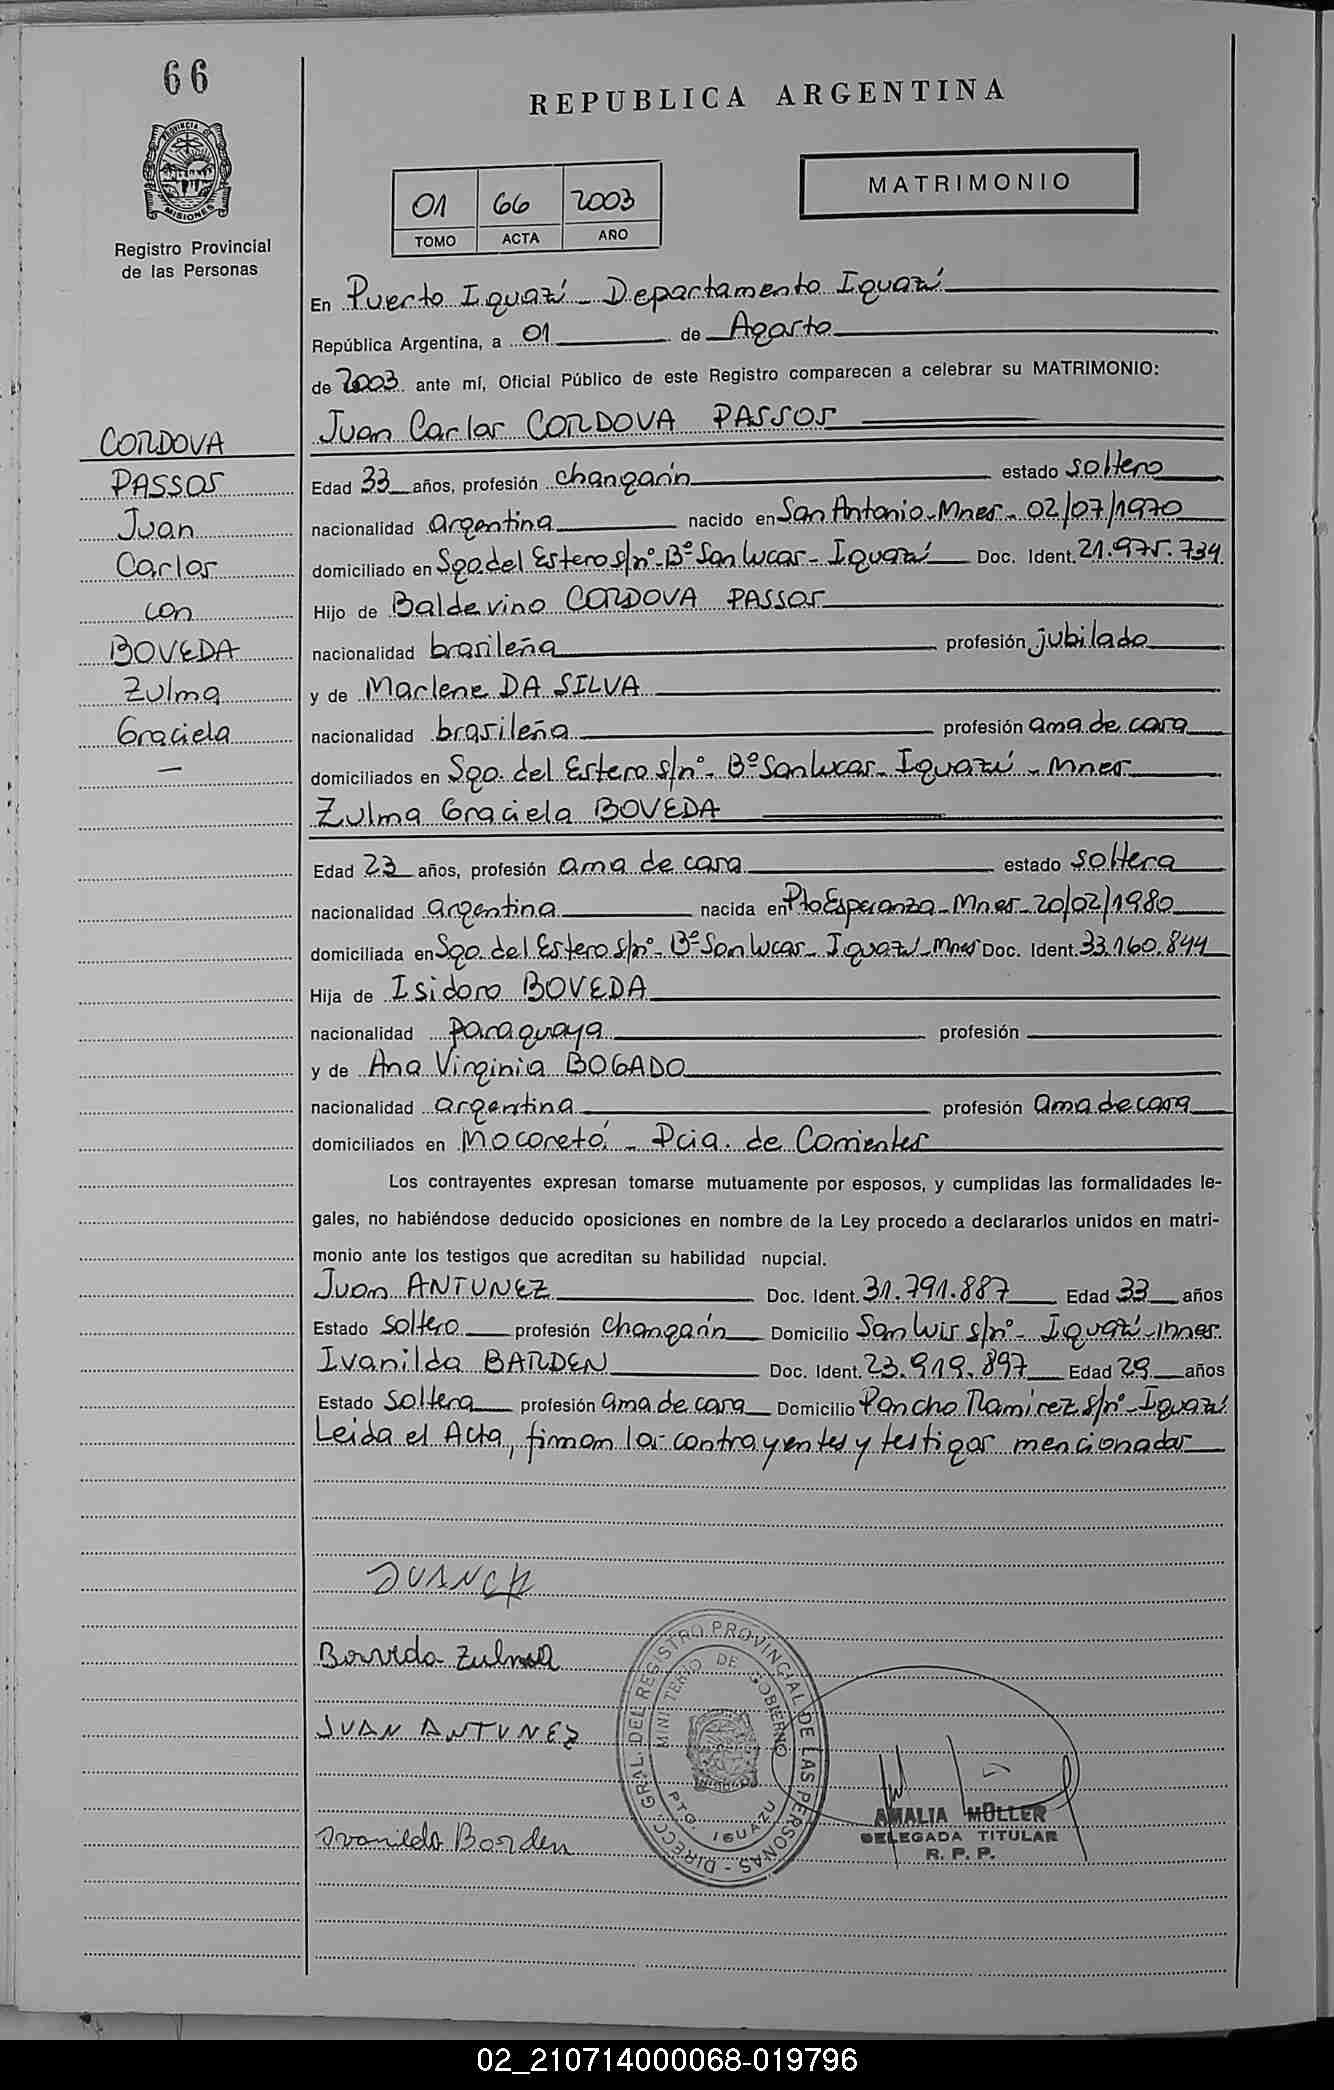 66
REPUBLICA ARGENTINA
PROVINCIA DE
MISIONES
Registro Provincial
de las Personas
01 66 2003
TOMO ACTA AÑO
MATRIMONIO
En Puerto Iguazú - Departamento Iguazú
República Argentina, a 01 de Agosto
de 2003 ante mí, Oficial Público de este Registro comparecen a celebrar su MATRIMONIO:
CORDOVA
PASSOS
Juan
Carlos
con
BOVEDA
Zulma
Graciela
Juan Carlos CORDOVA PASSOS
Edad 33 años, profesión changarín estado soltero
nacionalidad argentina nacido en San Antonio - Mnes - 02/07/1970
domiciliado en Sgo. del Estero s/nº - Bº San Lucas - Iguazú Doc. Ident. 21.975.734
Hijo de Baldevino CORDOVA PASSOS
nacionalidad brasileña profesión jubilado
y de Marlene DA SILVA
nacionalidad brasileña profesión ama de casa
domiciliados en Sgo. del Estero s/nº - Bº San Lucas - Iguazú - Mnes
Zulma Graciela BOVEDA
Edad 23 años, profesión ama de casa estado soltera
nacionalidad argentina nacida en Pto Esperanza - Mnes - 20/02/1980
domiciliada en Sgo. del Estero s/nº - Bº San Lucas - Iguazú - Mnes Doc. Ident. 33.160.844
Hija de Isidoro BOVEDA
nacionalidad paraguaya profesión
y de Ana Virginia BOGADO
nacionalidad argentina profesión ama de casa
domiciliados en Mocoretá - Pcia. de Corrientes
Los contrayentes expresan tomarse mutuamente por esposos, y cumplidas las formalidades le-
gales, no habiéndose deducido oposiciones en nombre de la Ley procedo a declararlos unidos en matri-
monio ante los testigos que acreditan su habilidad nupcial.
Juan ANTUNEZ Doc. Ident. 31.791.887 Edad 33 años
Estado soltero profesión changarín Domicilio San Luis s/nº - Iguazú - Mnes.
Ivanilda BARDEN Doc. Ident. 23.919.897 Edad 29 años
Estado soltera profesión ama de casa Domicilio Pancho Ramirez s/nº - Iguazú
Leida el Acta, firman los contrayentes y testigos mencionados
Boveda Zulma
JUAN ANTUNEZ
Ivanilda Borden
DIRECC. GRAL. DEL REGISTRO PROVINCIAL DE LAS PERSONAS
MINISTERIO DE GOBIERNO
PTO. IGUAZU
AMALIA MÜLLER
DELEGADA TITULAR
R. P. P.
02_210714000068-019796